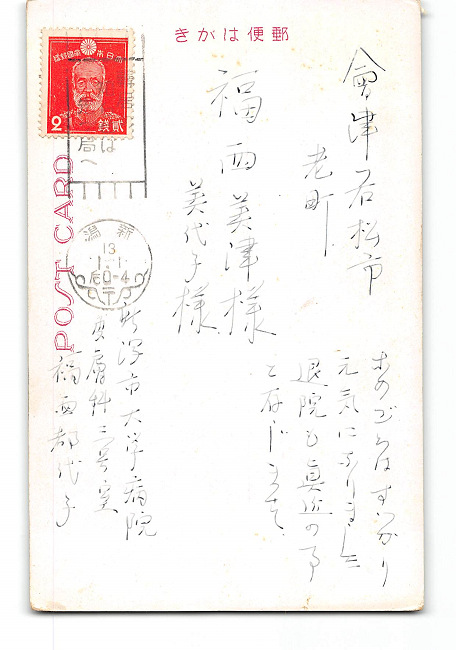 きがは便郵
會津若松市
老町
福西美津様
美代子様
このごろはすつかり
元気になりました
退院も真近の事
と存じます
新潟市大学病院
皮膚科二号室
福西都代子
POST CARD
便郵國帝本日大
2
銭貳
局へは
新潟
13
1.1
后0-4